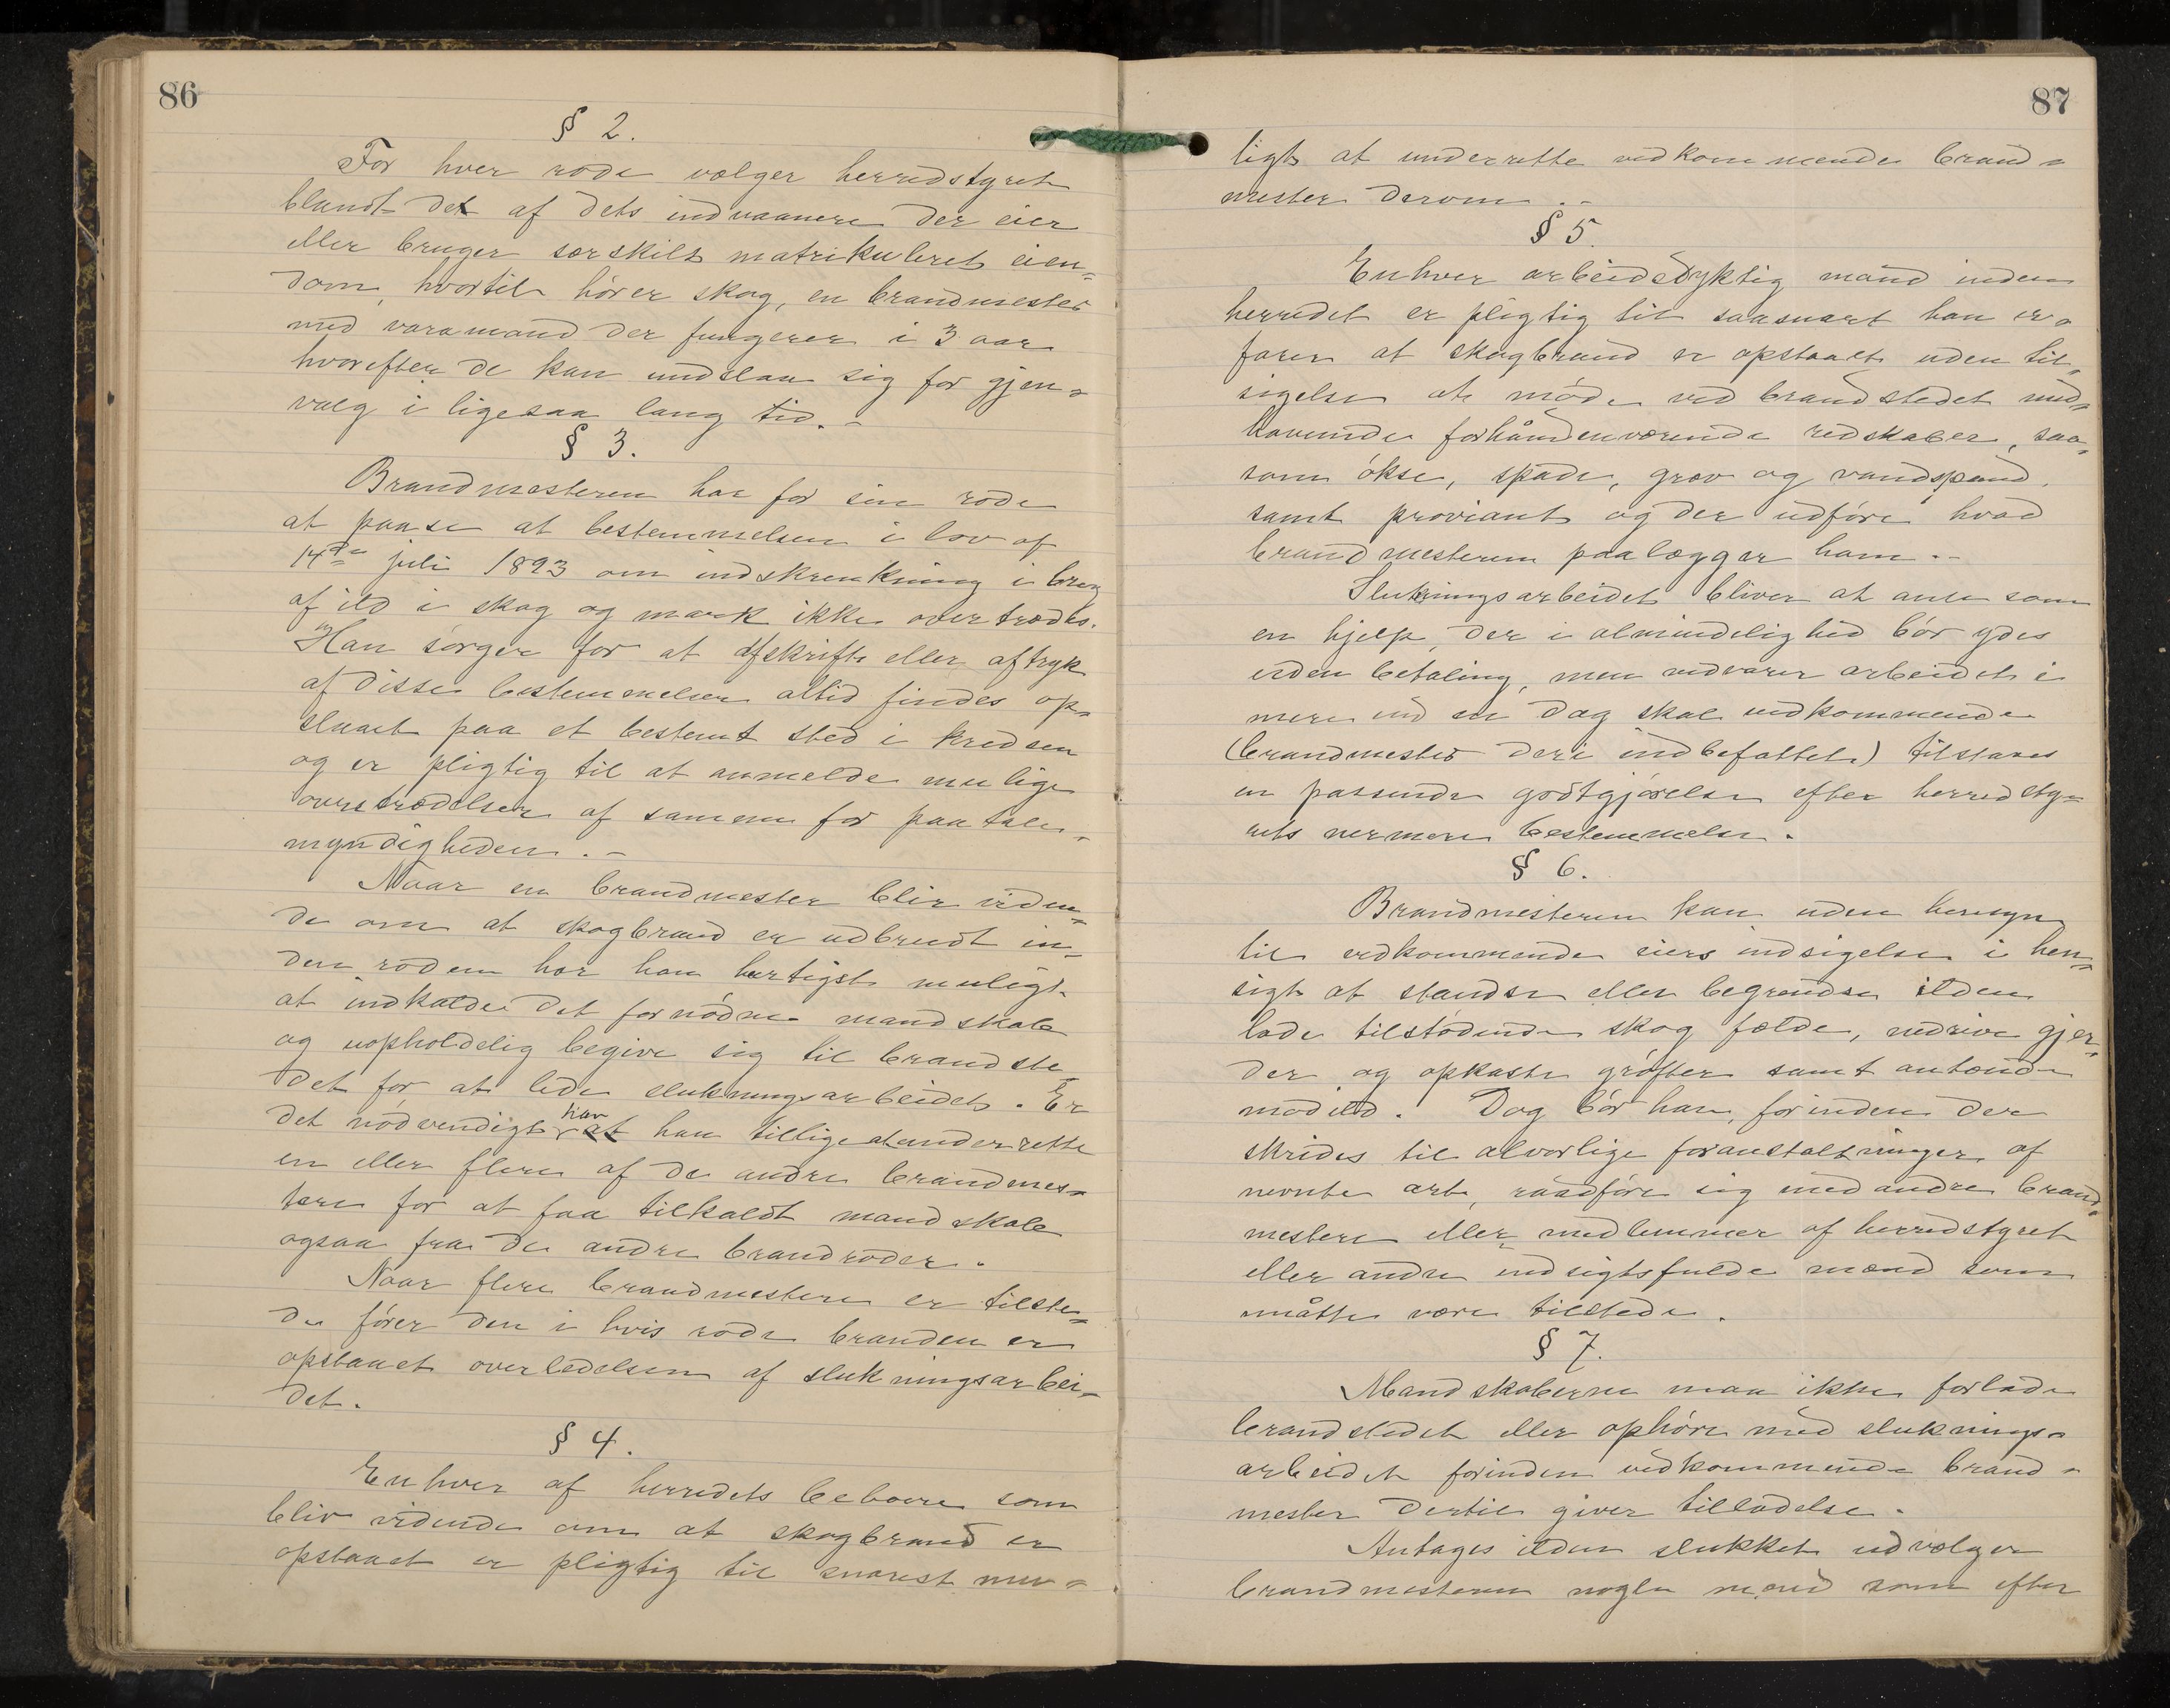 86
§ 2.
For hver rode vælger herredstyret
blandt de af dets indvaanere der eier
eller bruger særskilt matrikuleret eien=
dom, hvortil hører skog, en brandmester
med varamand der fungerer i 3 aar
hvorefter de kan undslaa sig for gjen=
valg i ligesaa lang tid. –
§ 3.
Brandmesteren har for sin rode
at paase at bestemmelsen i lov af
14de juli 1893 om indskrenkning i brug
af ild i skog og mark ikke overtrædes.
Han sørger for at afskrift eller aftryk
af disse bestemmelser altid findes op=
slaaet paa et bestemt sted i kredsen
og er pligtig til at anmelde mulige
overtrædelser af samme for paatale=
myndigheden. –
Naar en brandmester blir viden=
de om at skogbrand er udbrudt in=
den roden har han hurtigst muligt
at indkalde det fornødne mandskab
og uopholdelig begive sig til brandste=
det for at lede slukningsarbeidet. Er
det nødvendigt har han tillige at underrette
en eller flere af de andre brandmes=
tere for at faa tilkaldt mandskab
ogsaa fra de andre brandroder.
Naar flere brandmestere er tilste=
de fører den i hvis rode branden er
opstaaet overledelsen af slukningsarbei=
det.
§ 4.
Enhver af herredets beboere som
bliv vidende om at skogbrand er
opstaaet er pligtig til snarest mu=
87
ligt at underrette vedkommende brand=
mester derom. –
§ 5.
Enhver arbeidsdyktig mand inden
herredet er pligtig til saasnart han er=
farer at skogbrand er opstaaet uden til=
sigelse at møde ved brandstedet med=
havende forhåndenværende redskaber, saa=
som økse, spade, grev og vandspand,
samt proviant og der udføre hvad
brandmesteren paalægger ham. –
Slukningsarbeidet bliver at anse som
en hjelp, der i almindelighed bør ydes
uden betaling, men vedvarer arbeidet i
mere end en dag skal vedkommende
(brandmester deri indbefattet) tilstaaes
en passende godtgjørelse efter herredsty=
rets nermere bestemmelse.
§ 6.
Brandmesteren kan uden hensyn
til vedkommende eiers indsigelse i hen=
sigt at standse eller begrendse ilden
lade tilstødende skog fælde, nedrive gjer=
der og opkaste grøfter samt antænde
modild. Dog bør han, forinden der
skrides til alvorlige foranstaltninger af
nevnte art, raadføre sig med andre brand=
mestere eller medlemmer af herredstyret
eller andre indsigtsfulde mænd som
måtte være tilstede.
§ 7.
Mandskaberne maa ikke forlade
brandstedet eller ophøre med sluknings=
arbeidet forinden vedkommende brand=
mester dertil giver tilladelse.
Antages ilden slukket udvælger
brandmesteren nogle mænd som efter